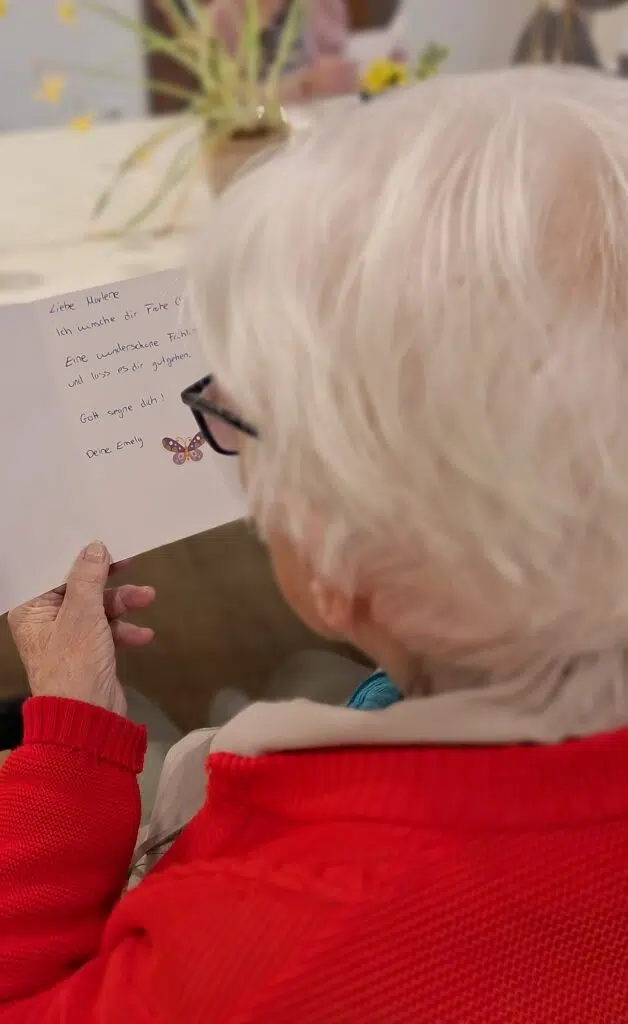 Liebe Marlene
Ich wünsche dir Frohe
Eine wunderschöne
und lass es dir gutgehen.
Gott segne dich!
Deine Emely